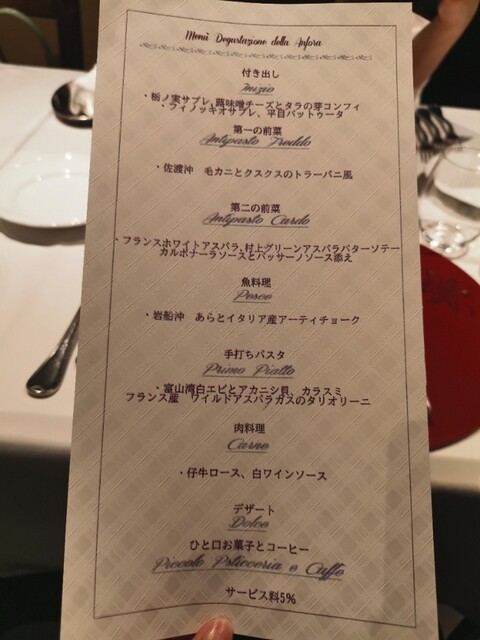 Menù Degustazione della Anfora
付き出し
Inizio
・栃ノ実サブレ,蕗味噌チーズとタラの芽コンフィ
・フィノッキオサブレ、平目バットゥータ
第一の前菜
Antipasto Freddo
・佐渡沖　毛カニとクスクスのトラーパニ風
第二の前菜
Antipasto Cardo
・フランスホワイトアスパラ,村上グリーンアスパラバターソテー
カルボナーラソースとバッサーノソース添え
魚料理
Pesce
・岩船沖　あらとイタリア産アーティチョーク
手打ちパスタ
Primo Piatto
・富山湾白エビとアカニシ貝、カラスミ
フランス産　ワイルドアスパラガスのタリオリーニ
肉料理
Carne
・仔牛ロース、白ワインソース
デザート
Dolce
ひと口お菓子とコーヒー
Piccolo Psticceria e Caffe
サービス料5%